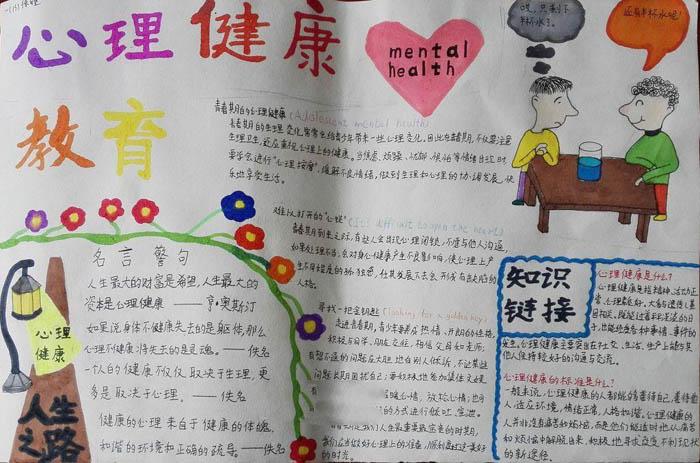 心理健康
教育
mental
health
哎,只剩下
半杯水了。
还有半杯水呢!
青春期的心理健康(Adolescent mental health)
青春期的生理变化常常会给青少年带来一些心理变化。因此在青春期,不仅要注意
生理卫生,还应重视心理上的健康。当焦虑、烦恼、忧郁、恨俗等情绪出现时
要学会进行“心理按摩”,缓解不良情绪,做到生理和心理的协调发展,快
乐地享受生活。
难以打开的“心锁”(It is difficult to open the heart)
青春期到来之时,有些人会出现心理闭锁,不愿与他人沟通,
如果处理不当,会对身心健康产生不良影响,使心理上产
生不同程度的孤独感,任其发展下去会形成有缺陷的
人格。
寻找一把金钥匙(looking for a golden key)
走进青春期,青少年要有热情、开朗的性格,
积极与同学、朋友交往,相信父母如老师,
有想不通的问题应大胆地向别人倾诉,不让某些
问题长期困扰自己;要积极地参加集体文娱
放松心情;也
的方式进行倾吐、宣泄。
我们应当做好心理上的准备,顺利度过这一美好
的时光。
名言警句
人生最大的财富是希望,人生最大的
资本是心理健康 ——亨·奥斯汀
如果说身体不健康失去的是躯体,那么
心理不健康将失去的是灵魂。——佚名
一个人的健康不仅仅取决于生理,更
多是取决于心理。——佚名
健康的心理来自于健康的体魄、
和谐的环境和正确的疏导。——佚名
心理
健康
人生
之路
知识
链接
心理健康是什么?
心理健康是指精神、活力正
常、心理素质好。
心理健康主要突出在社交、生活、生产上能与其
他人保持较好的沟通与交流。
心理健康的标准是什么?
一般来说,心理健康的人都能够善待自己,善待他
人,适应环境,情绪正常,人格和谐。心理健康的人
并非没有痛苦和烦恼,而是他们能适时地从痛
苦和烦恼中解脱出来,积极地寻求改变不利现状
的新途径。